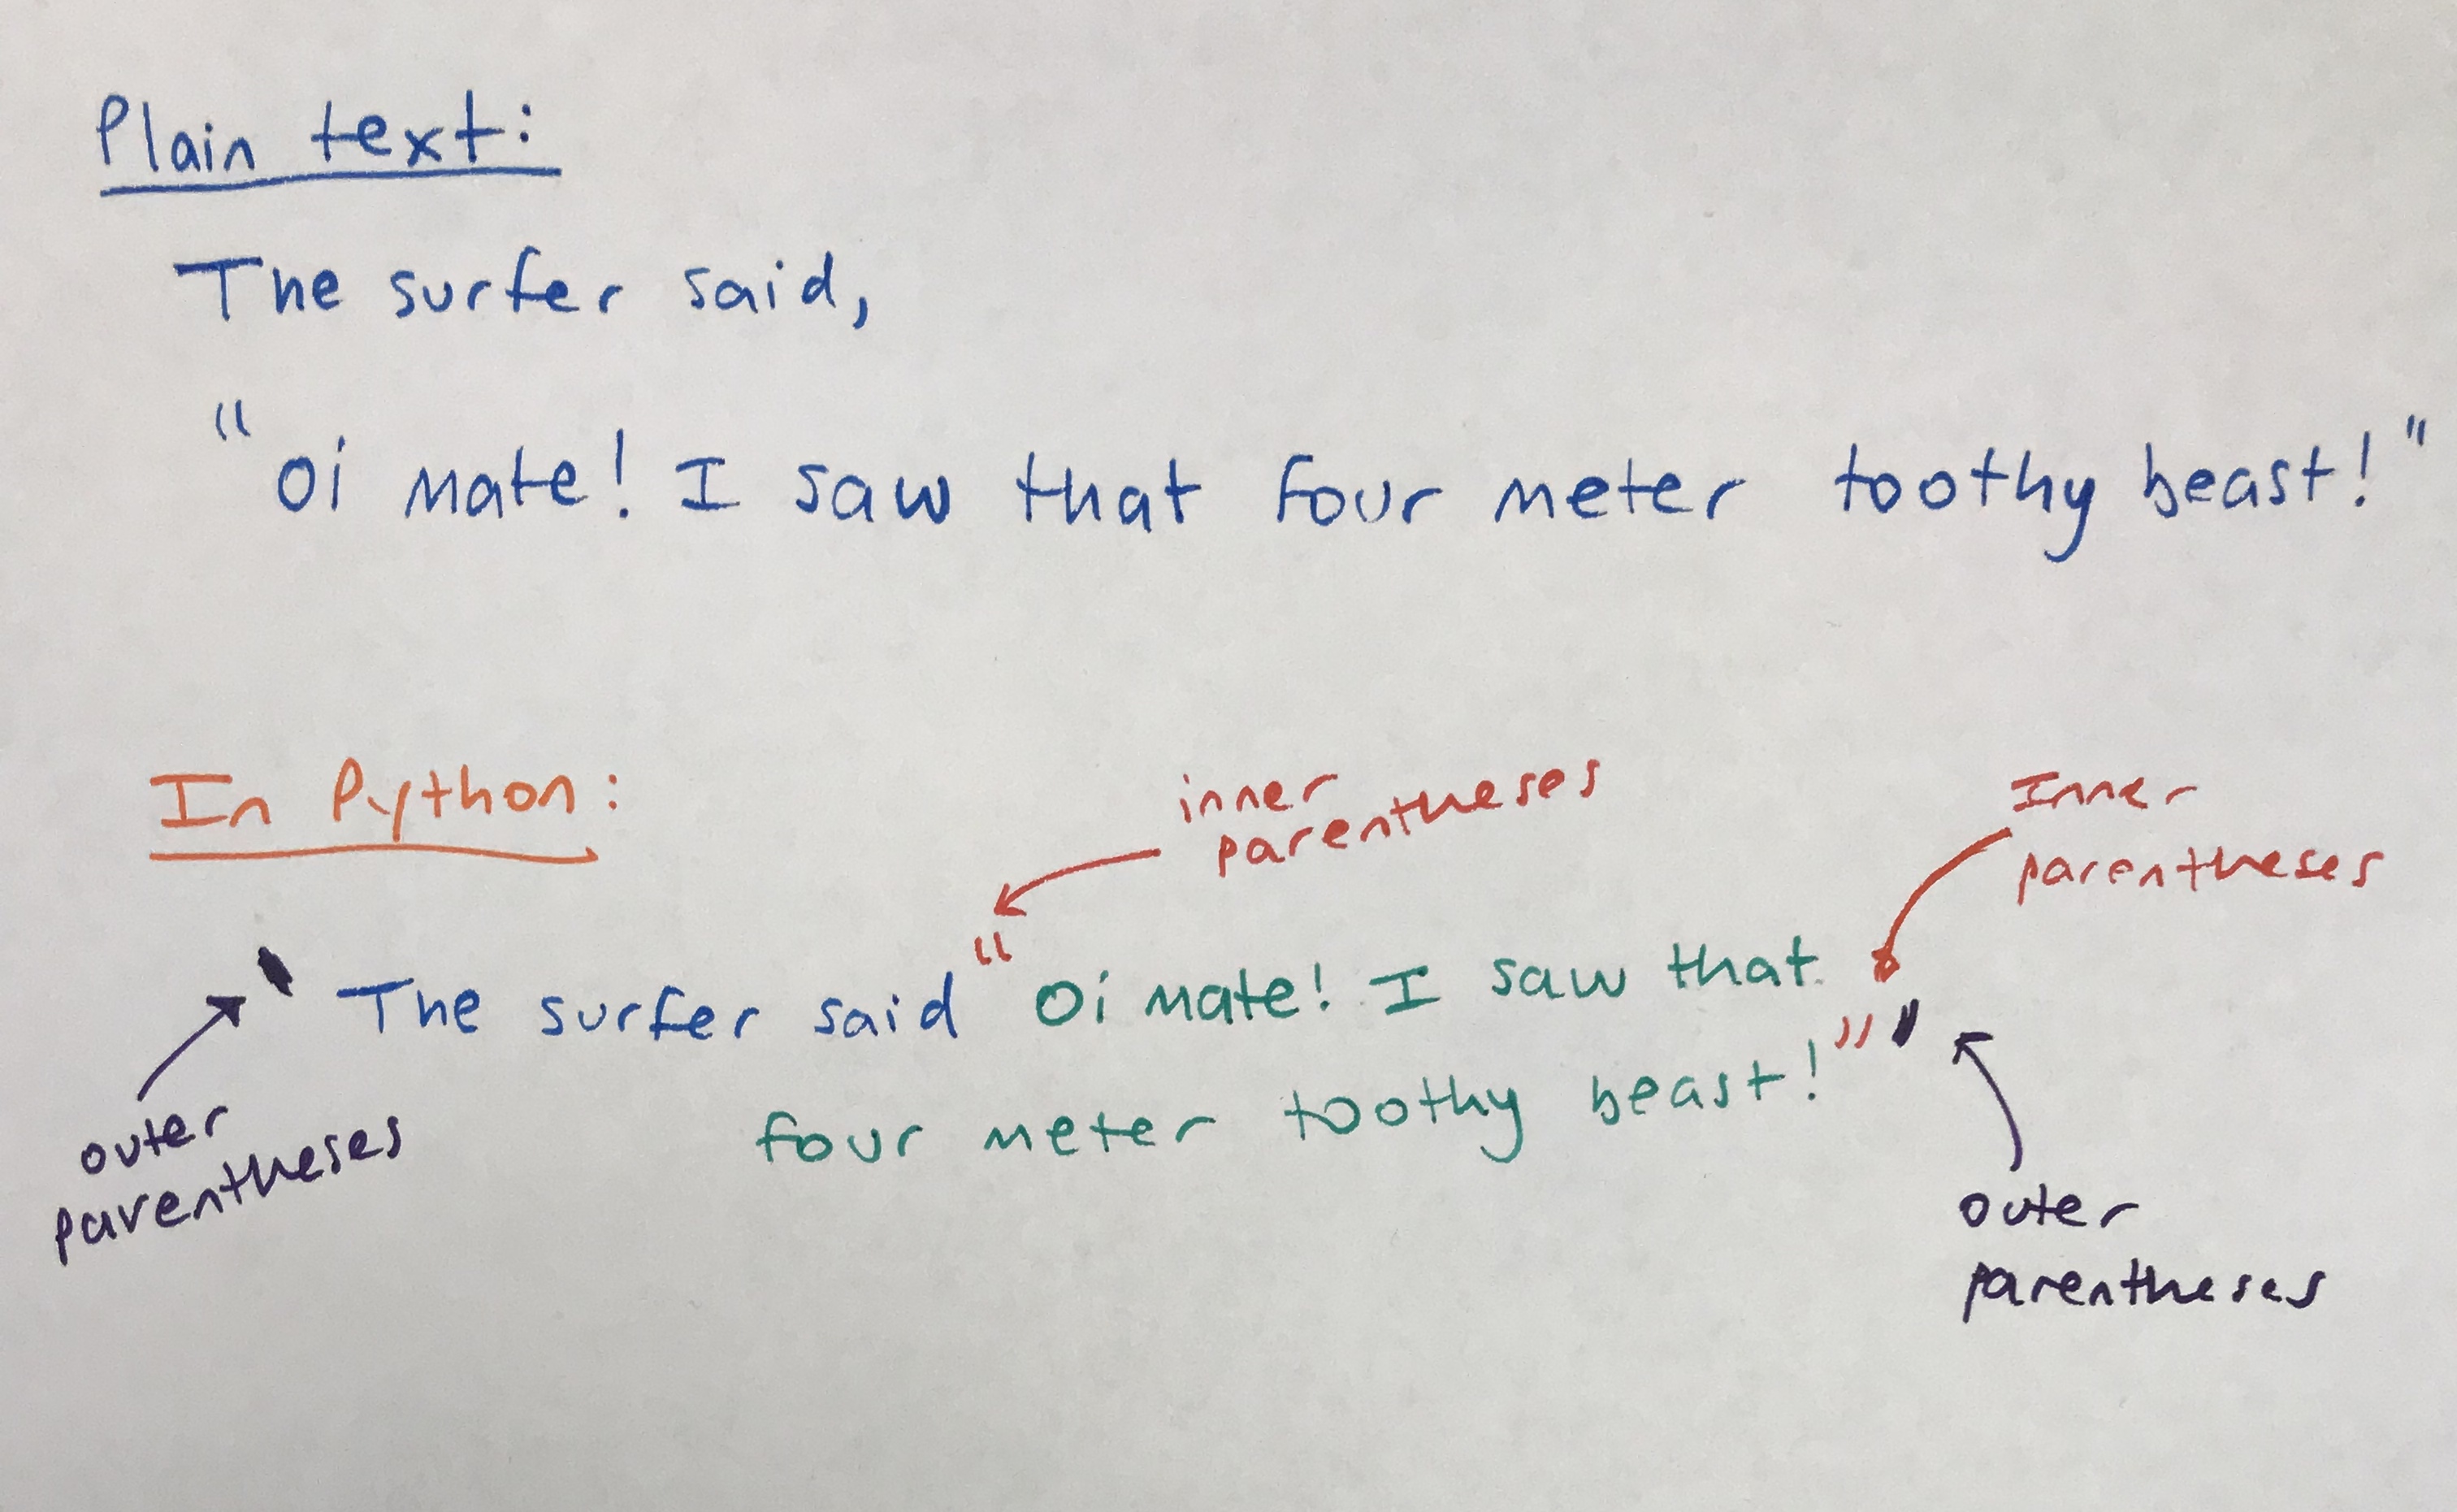 Plain text:
The surfer said,
"Oi mate! I saw that four meter toothy beast!"
In Python:
inner
parentheses
Inner
parentheses
' The surfer said "Oi mate! I saw that
four meter toothy beast!"'
outer
parentheses
outer
parentheses